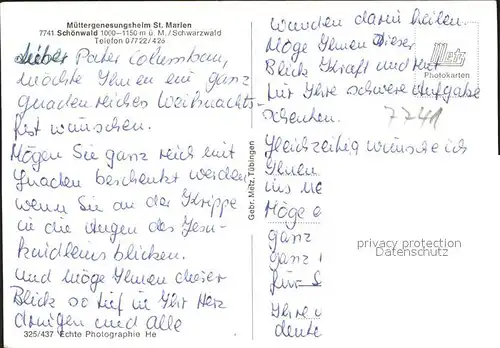 Müttergenesungsheim St. Marien
7741 Schönwald 1000—1150 m ü. M. / Schwarzwald
Telefon 07722/426
Lieber Pater Columban,
möchte Ihnen ein ganz
gnadenreiches Weihnachts-
fest wünschen.
Mögen Sie ganz reich mit
Gnaden beschenkt werden
wenn Sie an der Krippe
in die Augen des Jesu-
kindleins blicken.
Und möge Ihnen dieser
Blick so tief in Ihr Herz
dringen und alle
325/437 Echte Photographie He
Gebr. Metz, Tübingen
Wunden darin heilen.
Möge Ihnen dieser
Blick Kraft und Mut
für Ihre schwere Aufgabe
schenken.
Metz
Photokarten
7741
Gleichzeitig wünsche ich
Ihnen
ins
Möge
ganz
ganz
für
Ihre
privacy protection
© Veikkos.com